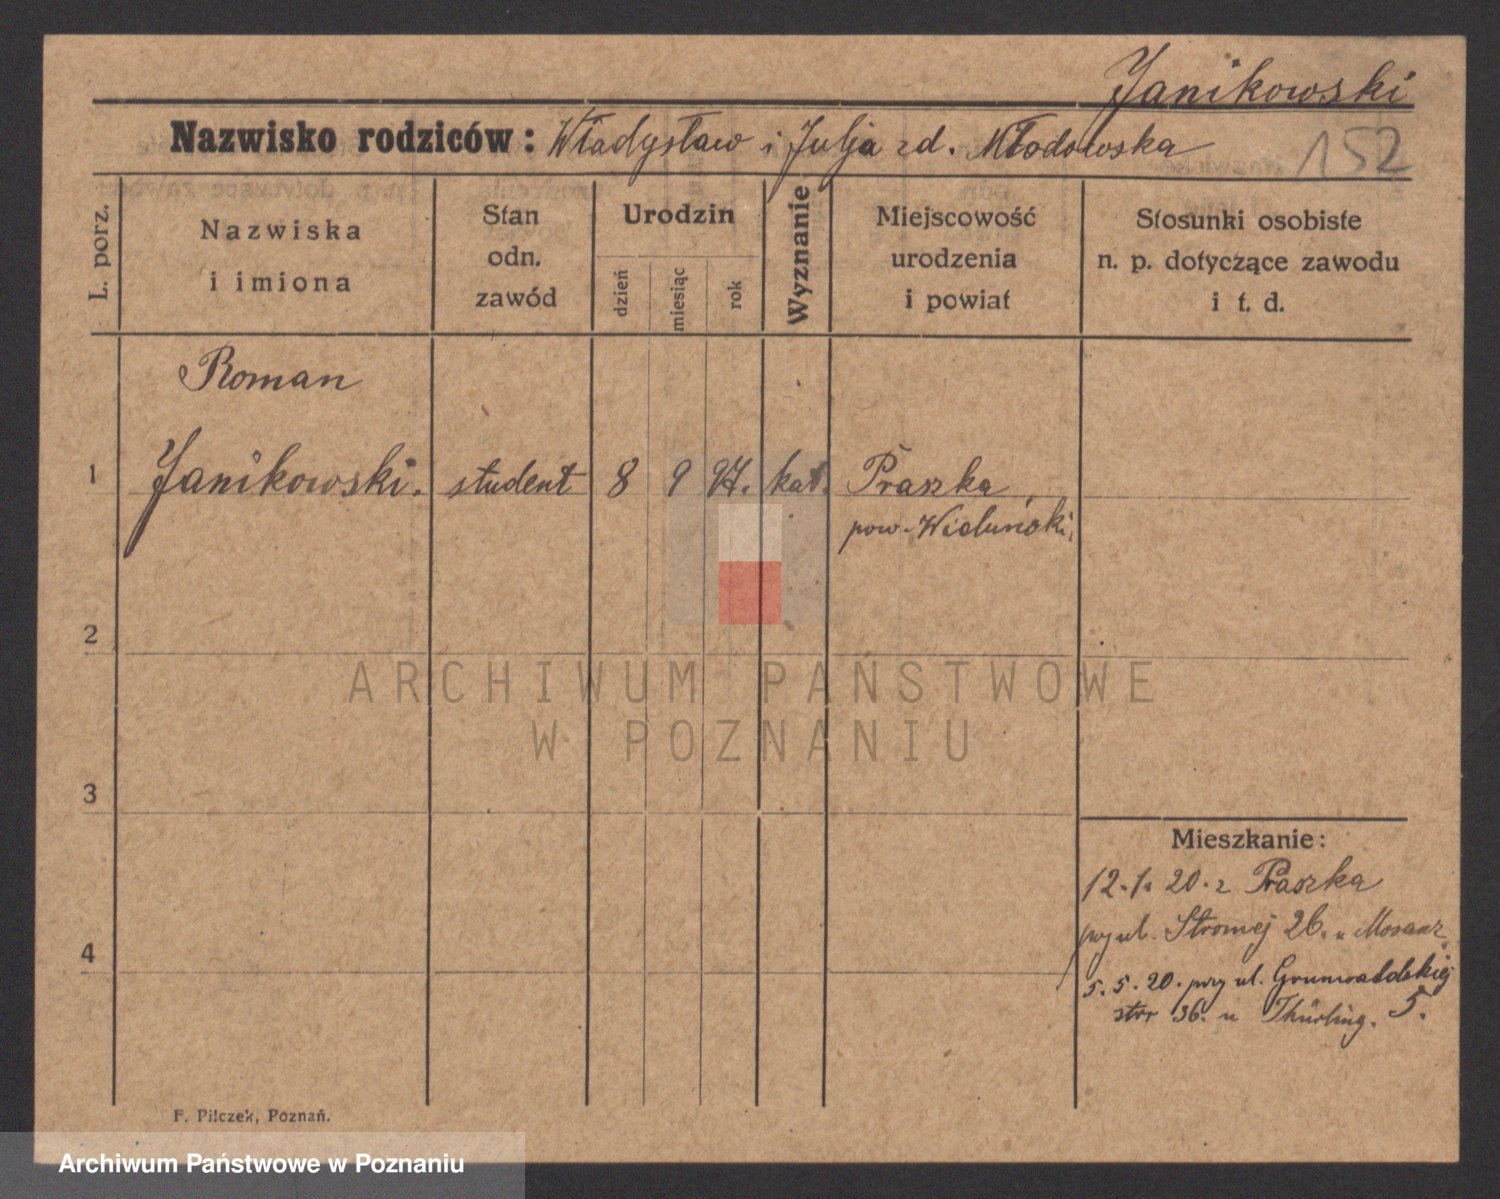 Janikowski
Nazwisko rodziców: Władysław i Julja zd. Młodowska
152
L. porz.
Nazwiska
i imiona
Stan
odn.
zawód
Urodzin
dzień
miesiąc
rok
Wyznanie
Miejscowość
urodzenia
i powiat
Stosunki osobiste
n. p. dotyczące zawodu
i t. d.
Roman
1 Janikowski. student 8 9 97. kat. Praszka,
pow. Wieluński.
2
3
4
Mieszkanie:
12.1.20. z Praszka
przy ul. Stromej 26. u
5.5.20. przy ul. Grunwaldzkiej
str 36. u Thürling. 5.
F. Pilczek, Poznań.
ARCHIWUM PAŃSTWOWE
W POZNANIU
Archiwum Państwowe w Poznaniu